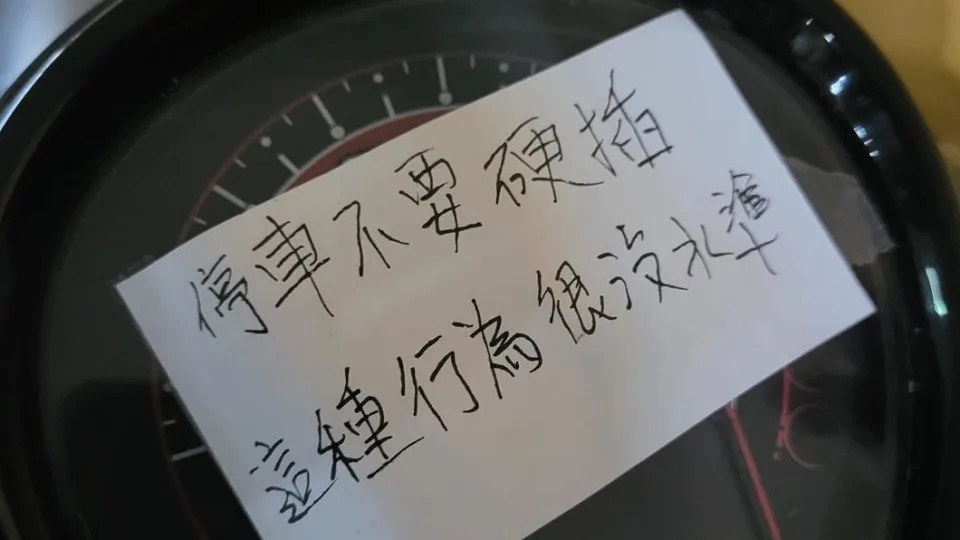 停車不要硬插
這種行為很没水準